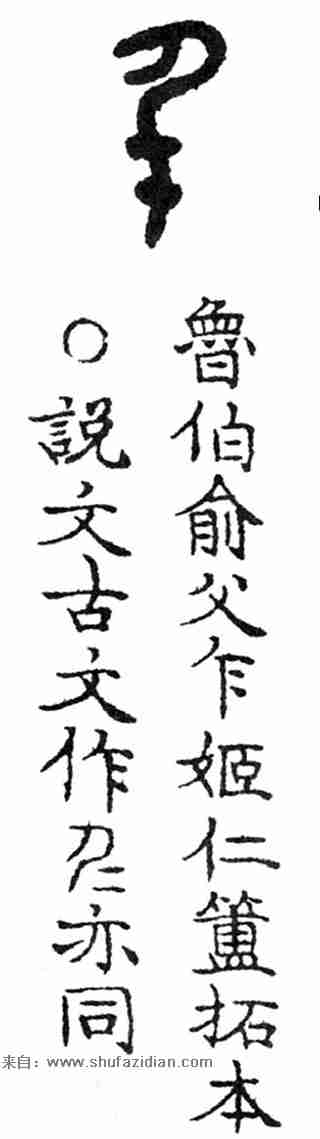 魯伯俞父乍姬仁簠拓本
○說文古文作𡰥亦同
来自：www.shufazidian.com